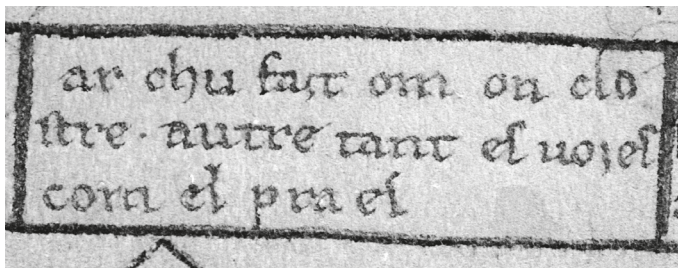 ar chu fait om ou clo
stre · autre tant es uoies
com el pra el